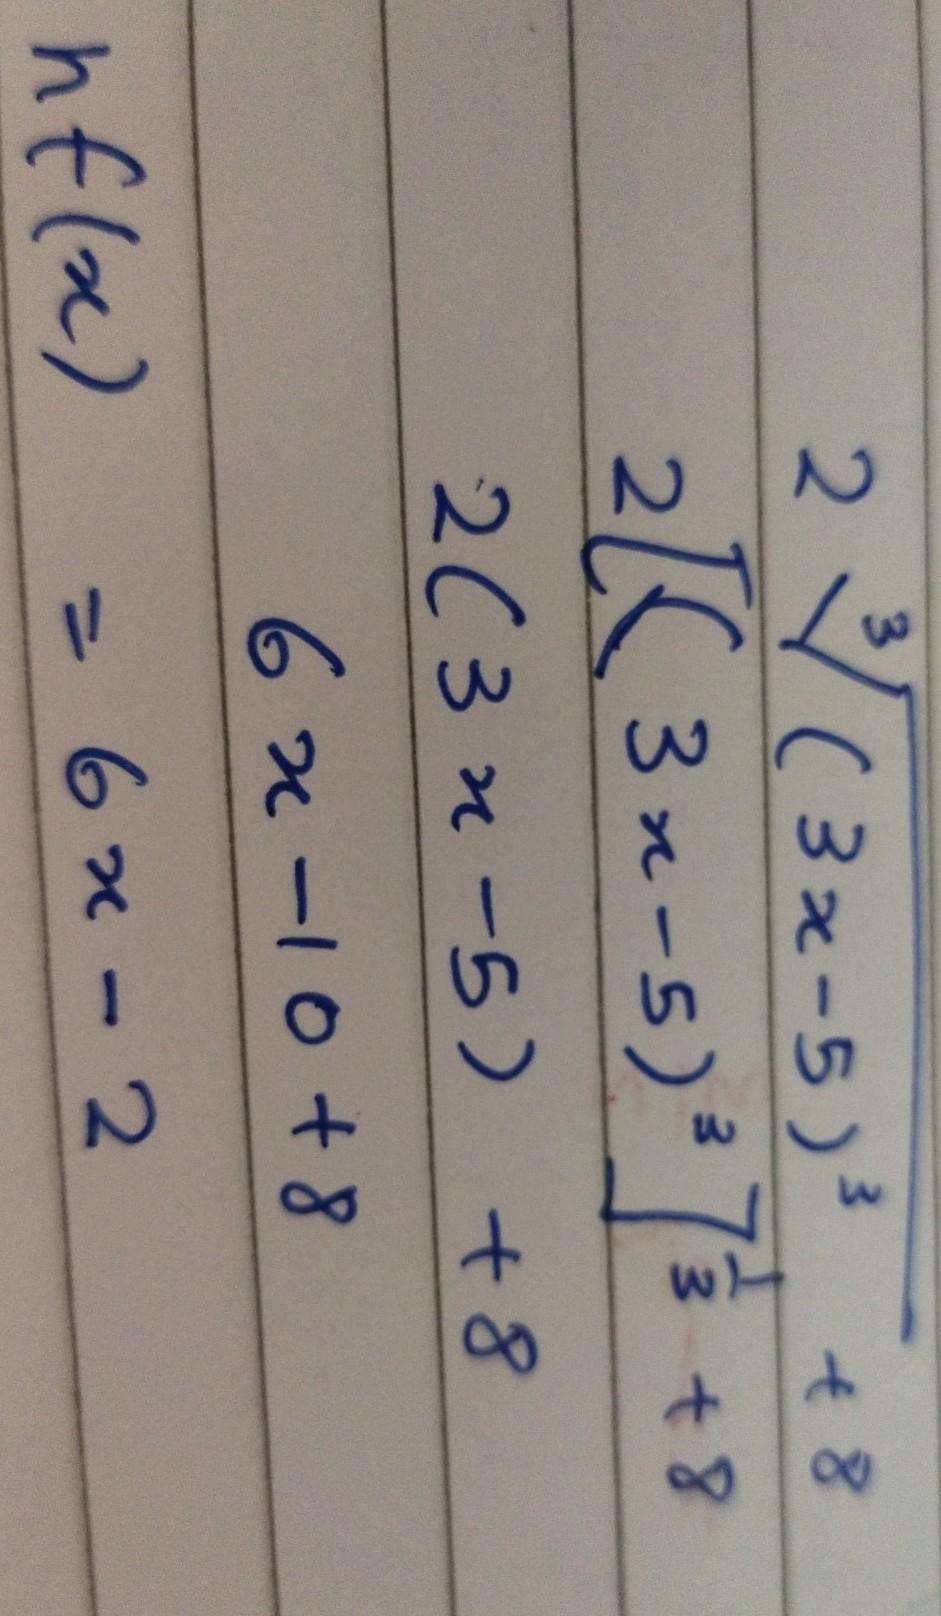 2 ∛(3x-5)³ + 8
2[(3x-5)³]^(1/3) + 8
2(3x-5) + 8
6x-10+8
hf(x) = 6x-2